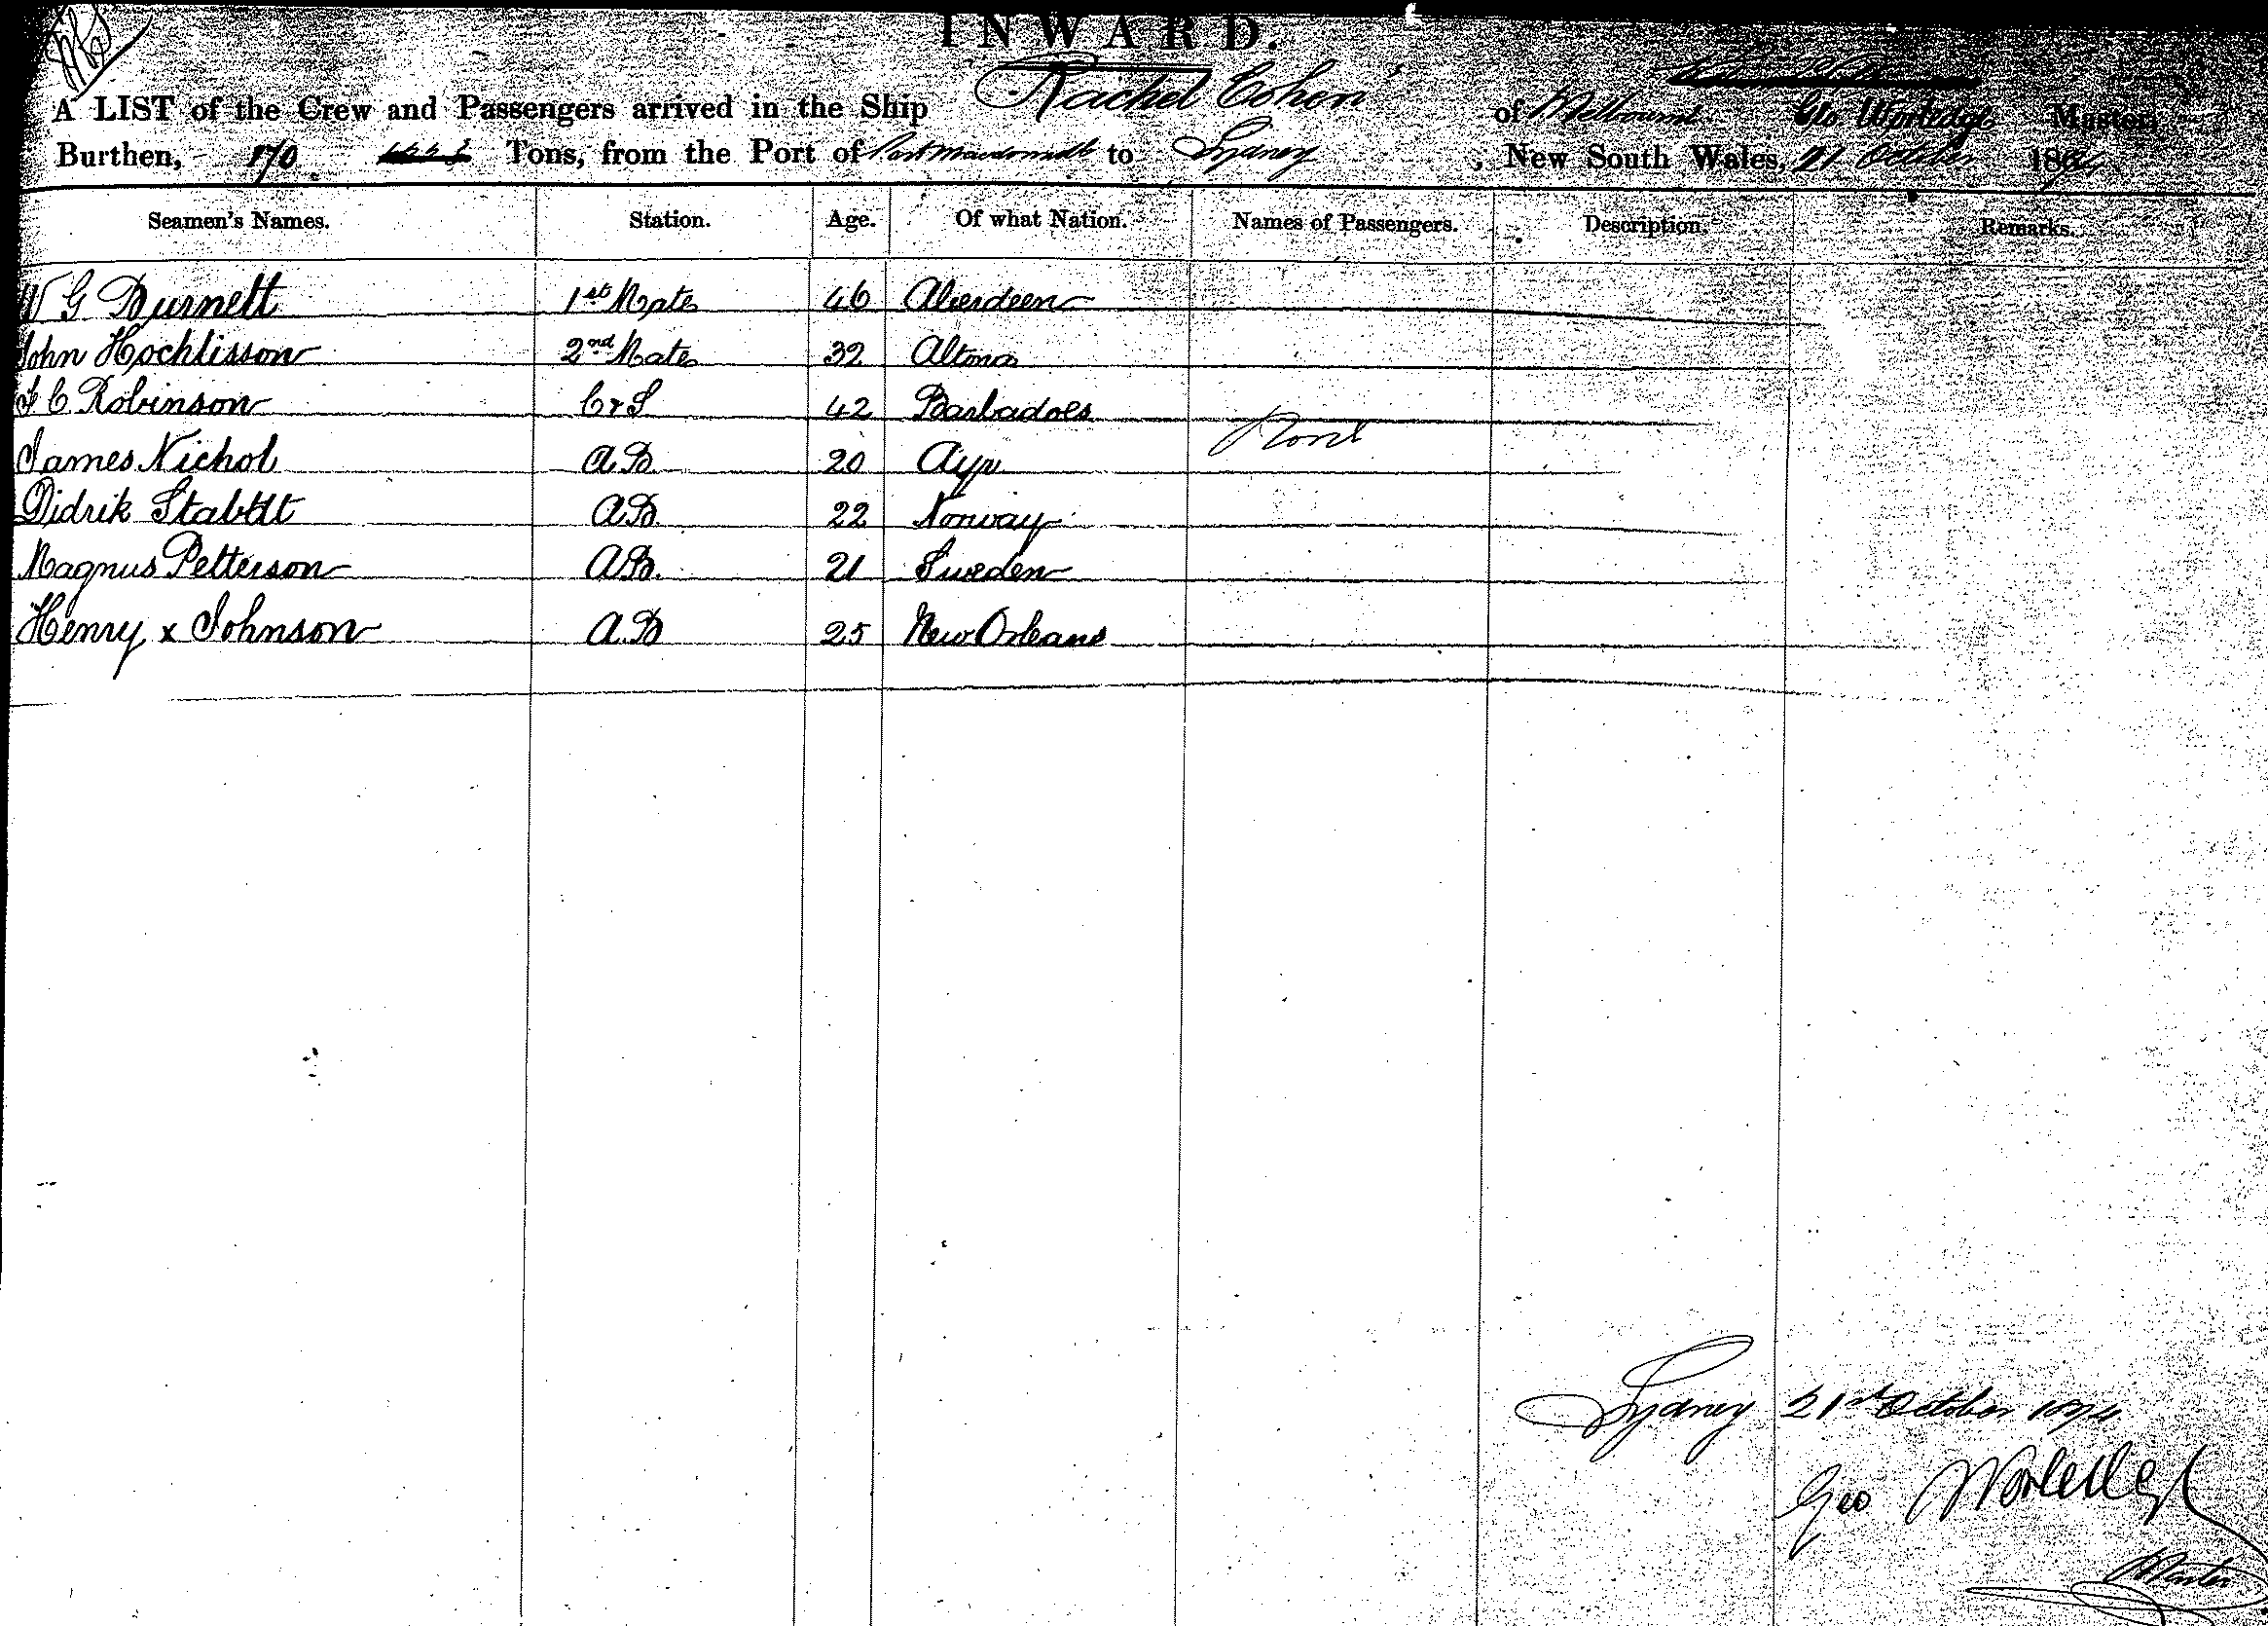 INWARD.
A LIST of the Crew and Passengers arrived in the Ship Rachel Cohen of Melbourne Geo Worledge Master,
Burthen, 170 Tons, from the Port of Port Macdonnell to Sydney, New South Wales, 21 October 1874
Seamen's Names. Station. Age. Of what Nation. Names of Passengers. Description. Remarks.
W G Burnett 1st Mate 46 Aberdeen
John Hochlisson 2nd Mate 32 Altona
C Robinson C & S 42 Barbadoes
None
James Nichol A.B 20 Ayr
Didrik A.B. 22 Norway
Magnus Petterson A.B. 21 Sweden
Henry x Johnson A.B 25 New Orleans
Sydney 21st October 1874
Geo Worledge
Master